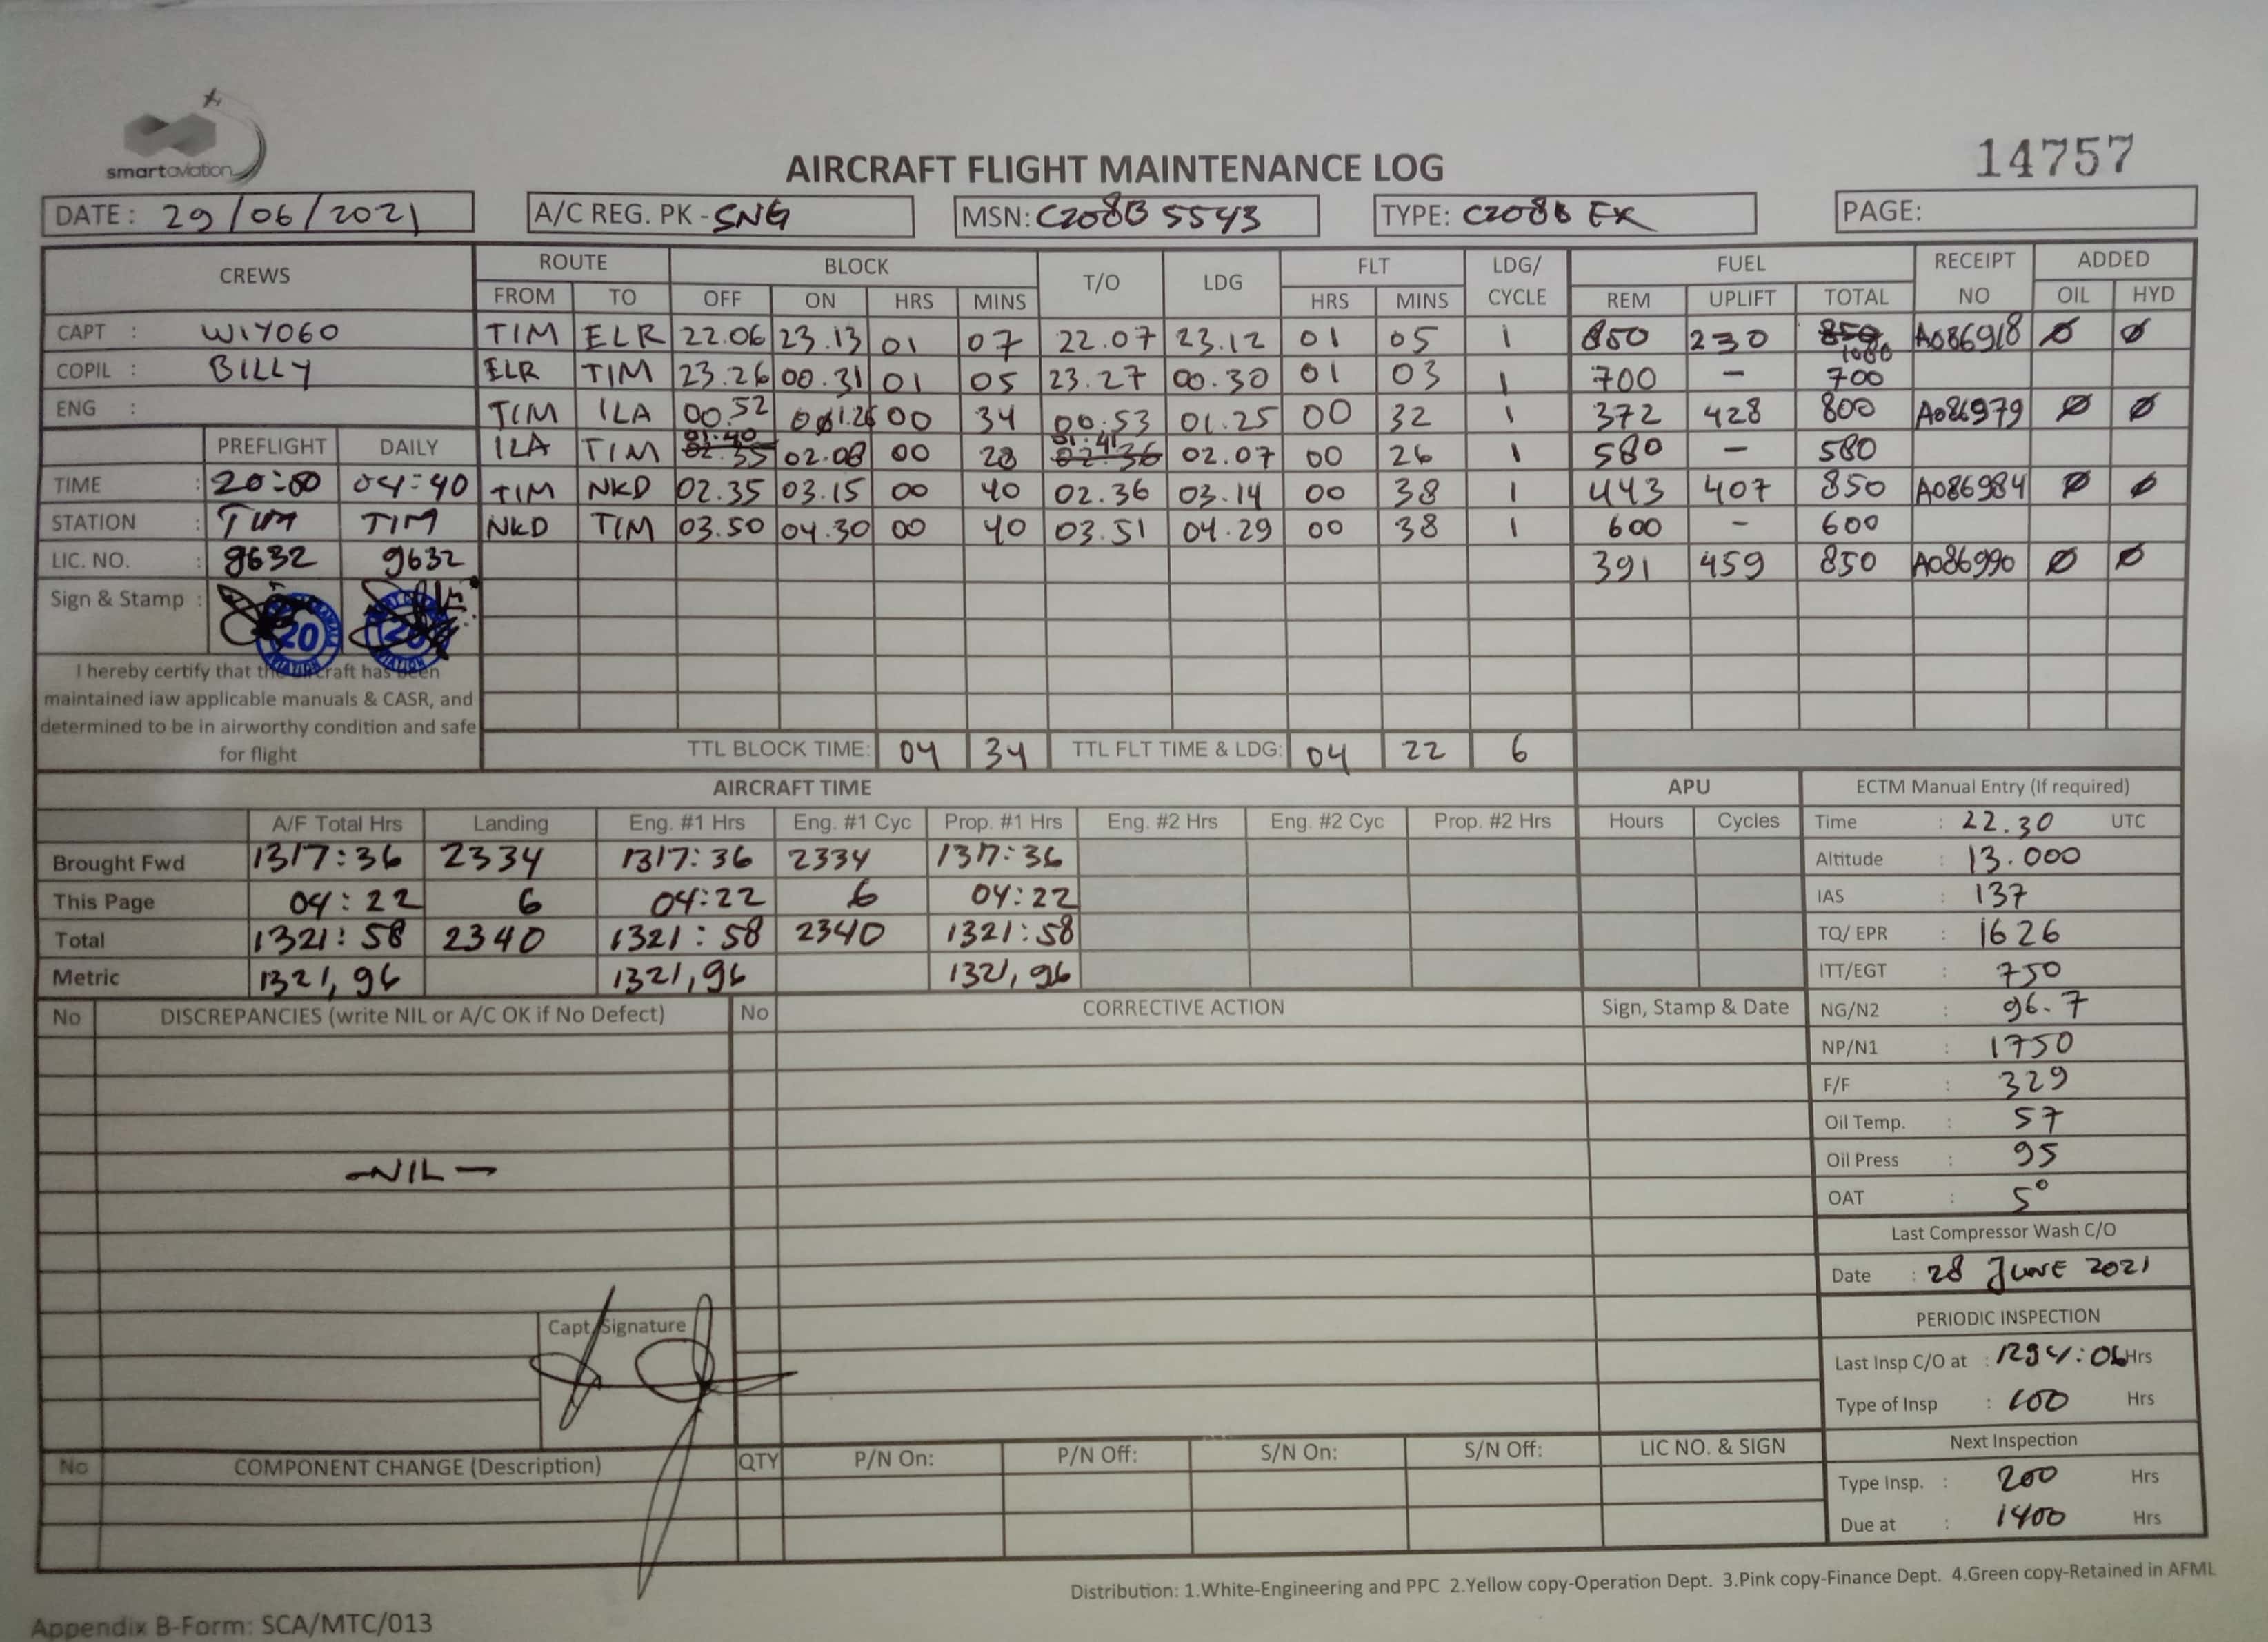 smartaviation
14757
AIRCRAFT FLIGHT MAINTENANCE LOG
DATE: 29/06/2021 A/C REG. PK - SNG MSN: C208B 5543 TYPE: C208B EX PAGE:
CREWS ROUTE BLOCK T/O LDG FLT LDG/ CYCLE FUEL RECEIPT NO ADDED
FROM TO OFF ON HRS MINS HRS MINS REM UPLIFT TOTAL OIL HYD
CAPT : WIYOGO TIM ELR 22.06 23.13 01 07 22.07 23.12 01 05 1 850 230 850 1080 A086918 Ø Ø
COPIL : BILLY ELR TIM 23.26 00.31 01 05 23.27 00.30 01 03 1 700 - 700
ENG : TIM ILA 00.52 01.26 00 34 00.53 01.25 00 32 1 372 428 800 A086979 Ø Ø
PREFLIGHT DAILY ILA TIM 01.40 02.35 02.08 00 28 01.41 02.36 02.07 00 26 1 580 - 580
TIME : 20:00 04:40 TIM NKD 02.35 03.15 00 40 02.36 03.14 00 38 1 443 407 850 A086984 Ø Ø
STATION : TIM TIM NKD TIM 03.50 04.30 00 40 03.51 04.29 00 38 1 600 - 600
LIC. NO. : 9632 9632 391 459 850 A086990 Ø Ø
Sign & Stamp : 20 20
AVIATION AVIATION
I hereby certify that the aircraft has been
maintained iaw applicable manuals & CASR, and
determined to be in airworthy condition and safe
for flight
TTL BLOCK TIME: 04 34 TTL FLT TIME & LDG: 04 22 6
AIRCRAFT TIME APU ECTM Manual Entry (If required)
A/F Total Hrs Landing Eng. #1 Hrs Eng. #1 Cyc Prop. #1 Hrs Eng. #2 Hrs Eng. #2 Cyc Prop. #2 Hrs Hours Cycles Time : 22.30 UTC
Brought Fwd 1317:36 2334 1317:36 2334 1317:36 Altitude : 13.000
This Page 04:22 6 04:22 6 04:22 IAS : 137
Total 1321:58 2340 1321:58 2340 1321:58 TQ/ EPR : 1626
Metric 1321,96 1321,96 1321,96 ITT/EGT : 750
No DISCREPANCIES (write NIL or A/C OK if No Defect) No CORRECTIVE ACTION Sign, Stamp & Date NG/N2 : 96.7
NP/N1 : 1750
F/F : 329
Oil Temp. : 57
-NIL- Oil Press : 95
OAT : 5°
Last Compressor Wash C/O
Date : 28 JUNE 2021
PERIODIC INSPECTION
Capt. Signature
Last Insp C/O at : 1294:06 Hrs
Type of Insp : 100 Hrs
Next Inspection
No COMPONENT CHANGE (Description) QTY P/N On: P/N Off: S/N On: S/N Off: LIC NO. & SIGN
Type Insp. : 200 Hrs
Due at : 1400 Hrs
Distribution: 1.White-Engineering and PPC 2.Yellow copy-Operation Dept. 3.Pink copy-Finance Dept. 4.Green copy-Retained in AFML
Appendix B-Form: SCA/MTC/013